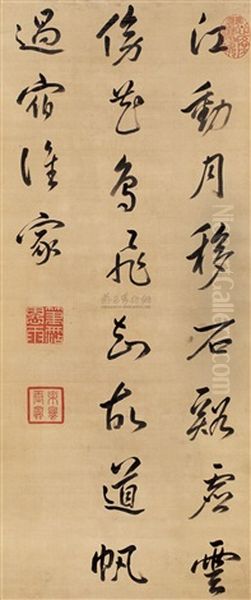 江動月移石谿虛雲
傍花鳥飛知故道帆
過宿誰家